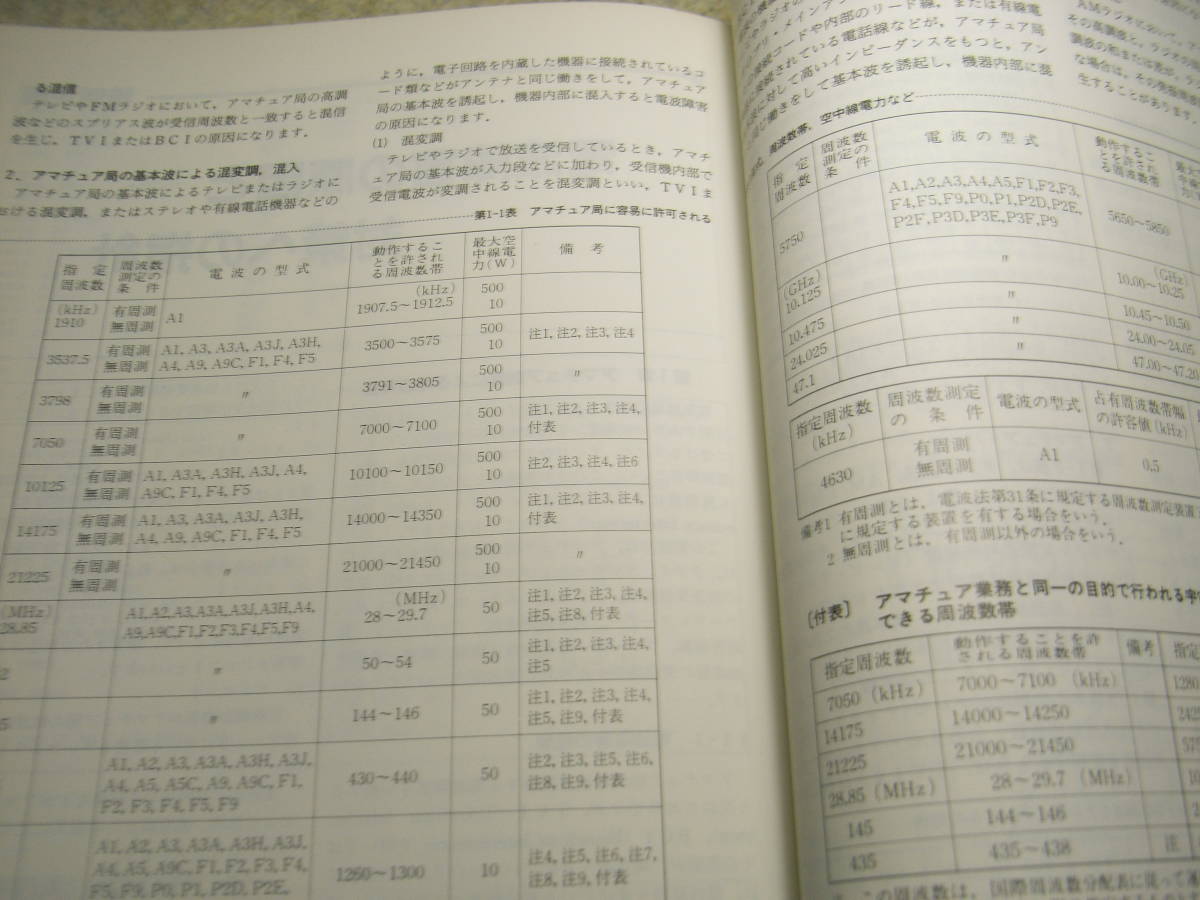 る混信
テレビやFMラジオにおいて，アマチュア局の高調
波などのスプリアス波が受信周波数と一致すると混信
を生じ，TVIまたはBCIの原因になります．
2．アマチュア局の基本波による混変調，混入
アマチュア局の基本波によるテレビまたはラジオに
おける混変調，またはステレオや有線電話機器などの
ように，電子回路を内蔵した機器に接続されているコ
ード類などがアンテナと同じ働きをして，アマチュア
局の基本波を誘起し，機器内部に混入すると電波障害
の原因になります．
(1) 混変調
テレビやラジオで放送を受信しているとき，アマチ
ュア局の基本波が入力段などに加わり，受信機内部で
受信電波が変調されることを混変調といい，TVIま
第1-1表 アマチュア局に容易に許可される
指定周波数 周波数測定の条件 電波の型式 動作することを許される周波数帯 最大空中線電力(W) 備考
(kHz) 1910 有周測 無周測 A1 (kHz) 1907.5～1912.5 500 10
3537.5 有周測 無周測 A1, A3, A3A, A3J, A3H, A4, A9, A9C, F1, F4, F5 3500～3575 500 10 注1, 注2, 注3, 注4
3798 有周測 無周測 〃 3791～3805 500 10 〃
7050 有周測 無周測 〃 7000～7100 500 10 注1, 注2, 注3, 注4, 付表
10125 有周測 無周測 A1, A3A, A3H, A3J, A4, A9C, F1, F4, F5 10100～10150 500 10 注2, 注3, 注4, 注6
14175 有周測 無周測 A1, A3, A3A, A3J, A3H, A4, A9, A9C, F1, F4, F5 14000～14350 500 10 注1, 注2, 注3, 注4, 付表
21225 有周測 無周測 〃 21000～21450 500 10 〃
(MHz) 28.85 A1,A2,A3,A3A,A3J,A3H,A4, A9,A9C,F1,F2,F3,F4,F5,F9 (MHz) 28～29.7 50 注1, 注2, 注3, 注4, 注5, 注8, 付表
2 〃 50～54 50 注1, 注2, 注3, 注4, 注5
5 〃 144～146 50 注1, 注2, 注3, 注4, 注5, 注9, 付表
A1, A2, A3, A3A, A3H, A3J, A4, A5, A5C, A9, A9C, F1, F2, F3, F4, F5, F9 430～440 50 注2, 注3, 注5, 注6, 注8, 注9, 付表
A1, A2, A3, A3A, A3H, A3J, A4, A5, A9C, F1, F2, F3, F4, F5, F9, P0, P1, P2D, P2E, 1260～1300 10 注4, 注5, 注6, 注7, 注8, 注9, 付表
コードや内部のリード線，または有線電
接続されている電話線などが，アマチュア局
に対して高いインピーダンスをもつと，アン
同じ働きをして基本波を誘起し，機器内部に混
周波数帯，空中線電力など
指定周波数 周波数測定の条件 電波の型式 動作することを許される周波数帯
5750 A1,A2,A3,A4,A5,F1,F2,F3, F4,F5,F9,P0,P1,P2D,P2E, P2F,P3D,P3E,P3F,P9 5650～5850
(GHz) 10.125 〃 (GHz) 10.00～10.25
10.475 〃 10.45～10.50
24.025 〃 24.00～24.05
47.1 〃 47.00～47.20
指定周波数(kHz) 周波数測定の条件 電波の型式 占有周波数帯幅の許容値(kHz)
4630 有周測 無周測 A1 0.5
備考1 有周測とは，電波法第31条に規定する周波数測定装置
に規定する装置を有する場合をいう．
2 無周測とは，有周測以外の場合をいう．
〔付表〕 アマチュア業務と同一の目的で行われる宇
できる周波数帯
指定周波数 動作することを許される周波数帯 備考 指定
7050 (kHz) 7000～7100 (kHz) 1280
14175 14000～14250
21225 21000～21450
28.85 (MHz) 28～29.7 (MHz)
145 144～146
435 435～438 注
この周波数は，国際周波数分配表に従って運